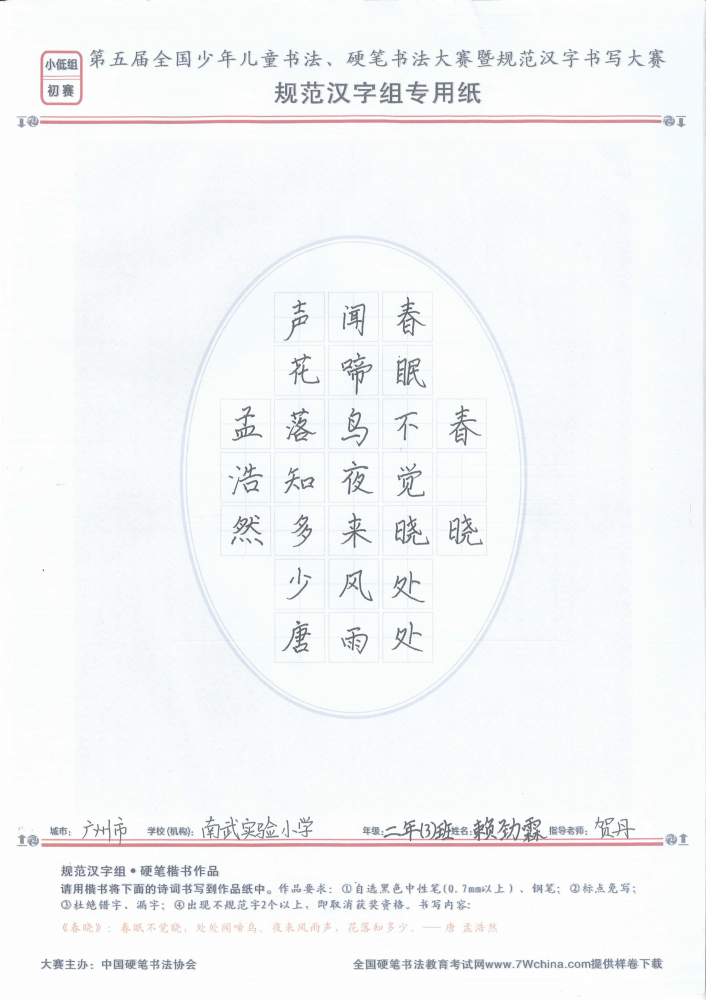 小低组
初赛
第五届全国少年儿童书法、硬笔书法大赛暨规范汉字书写大赛
规范汉字组专用纸
春晓
春眠不觉晓处处
闻啼鸟夜来风雨
声花落知多少唐
孟浩然
城市：广州市 学校(机构)：南武实验小学 年级：二年(3)班 姓名：赖劲霖 指导老师：贺丹
规范汉字组•硬笔楷书作品
请用楷书将下面的诗词书写到作品纸中。作品要求：①自选黑色中性笔(0.7mm以上）、钢笔；②标点免写；
③杜绝错字、漏字；④出现不规范字2个以上，即取消获奖资格。书写内容：
《春晓》：春眠不觉晓，处处闻啼鸟。夜来风雨声，花落知多少。—— 唐 孟浩然
大赛主办：中国硬笔书法协会 全国硬笔书法教育考试网www.7Wchina.com提供样卷下载